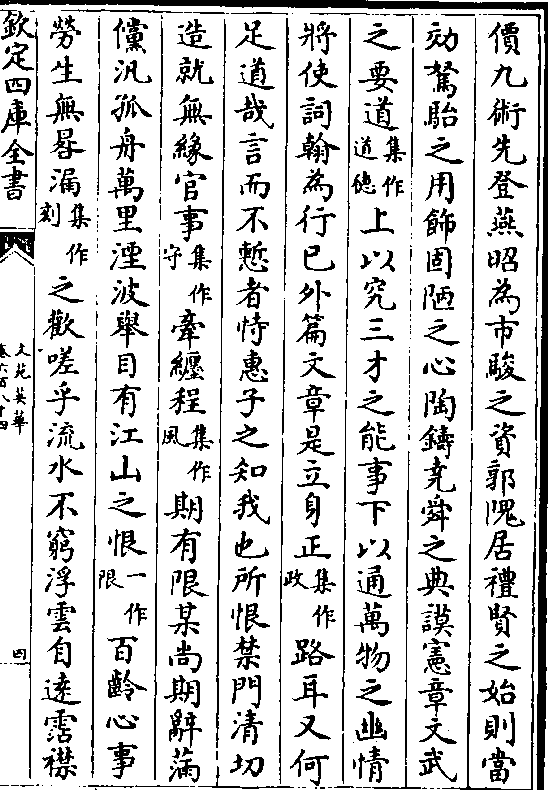 價九術先登燕昭為市駿之資郭隗居禮賢之始則當
効駑駘之用飾固陋之心陶鑄堯舜之典謨憲章文武
之要道集作道徳上以究三才之能事下以通萬物之幽情
將使詞翰為行已外篇文章是立身正集作政路耳又何
足道哉言而不慙者恃惠子之知我也所恨禁門清切
造就無緣官事集作守牽纒程集作風期有限某尚期辭滿
儻汎孤舟萬里湮波舉目有江山之恨一作限百齡心事
勞生無晷漏集作刻之歡嗟乎流水不窮浮雲自逺霑襟
欽定四庫全書
文苑英華
卷六百八十四
四